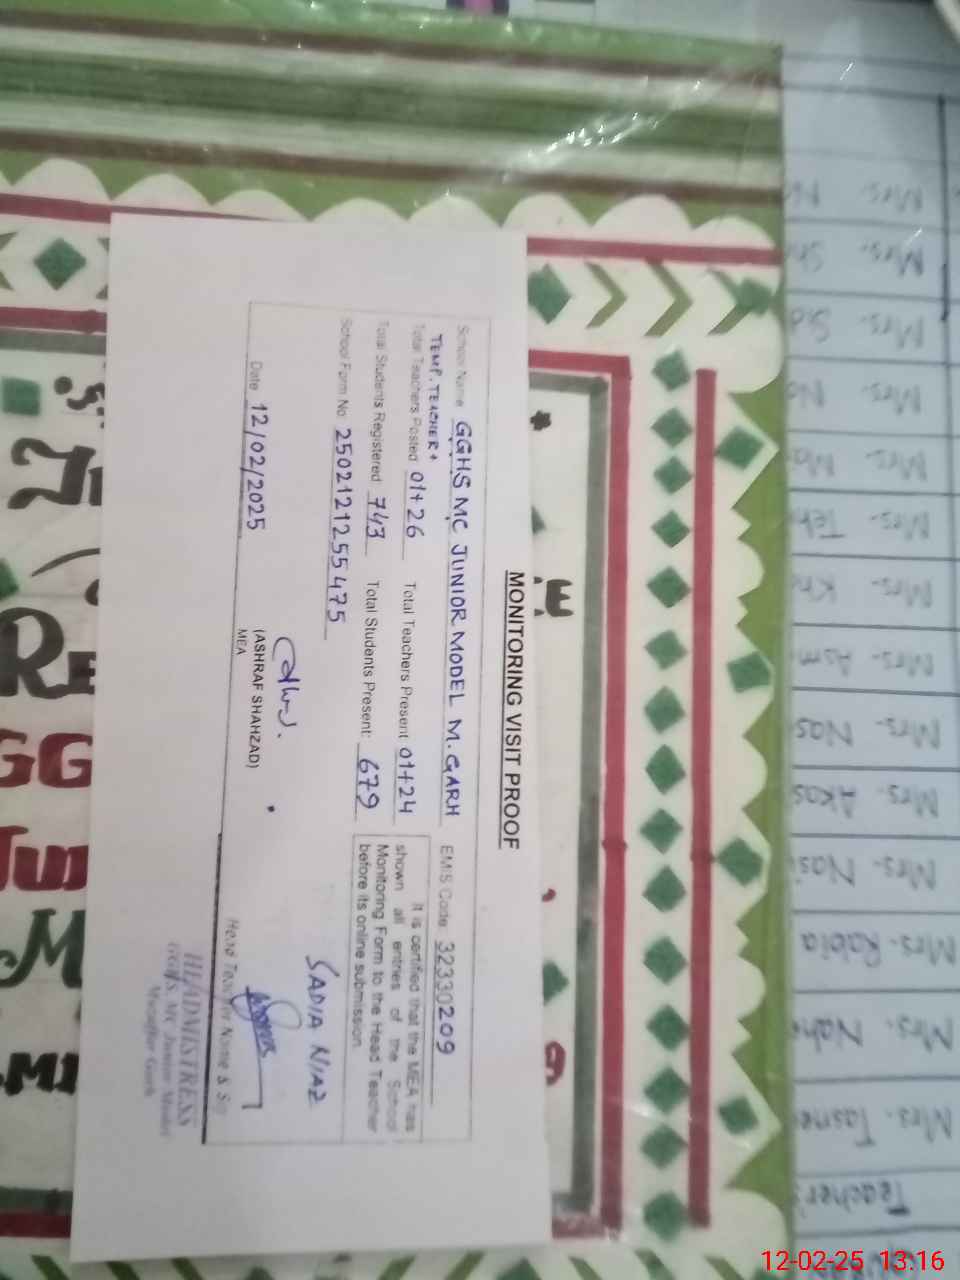 MONITORING VISIT PROOF
School Name GGHS MC JUNIOR MODEL M.GARH EMIS Code 32330209
TEMP.TEACHER+
Total Teachers Posted 01+26 Total Teachers Present 01+24
Total Students Registered 743 Total Students Present: 679
School Form No 250212125 5475
It is certified that the MEA has
shown all entries of the School
Monitoring Form to the Head Teacher
before its online submission.
SADIA NIAZ
Date 12/02/2025
(ASHRAF SHAHZAD)
MEA
Head Teacher Name & Sig
HEADMISTRESS
GGHS. MC Junior Model
Muzaffar Garh
GG
Jun
M
Teacher's
Mrs. Tasne
Mrs. Nah
Mrs. Rabia
Mrs. Nasi
Mrs. Akas
Mrs. Nas
Mrs. Asm
Mrs. Kh
Mrs. Teh
Mrs.
Mrs. No
Mrs.
Mrs. Sh
Mrs.
12-02-25 13:16